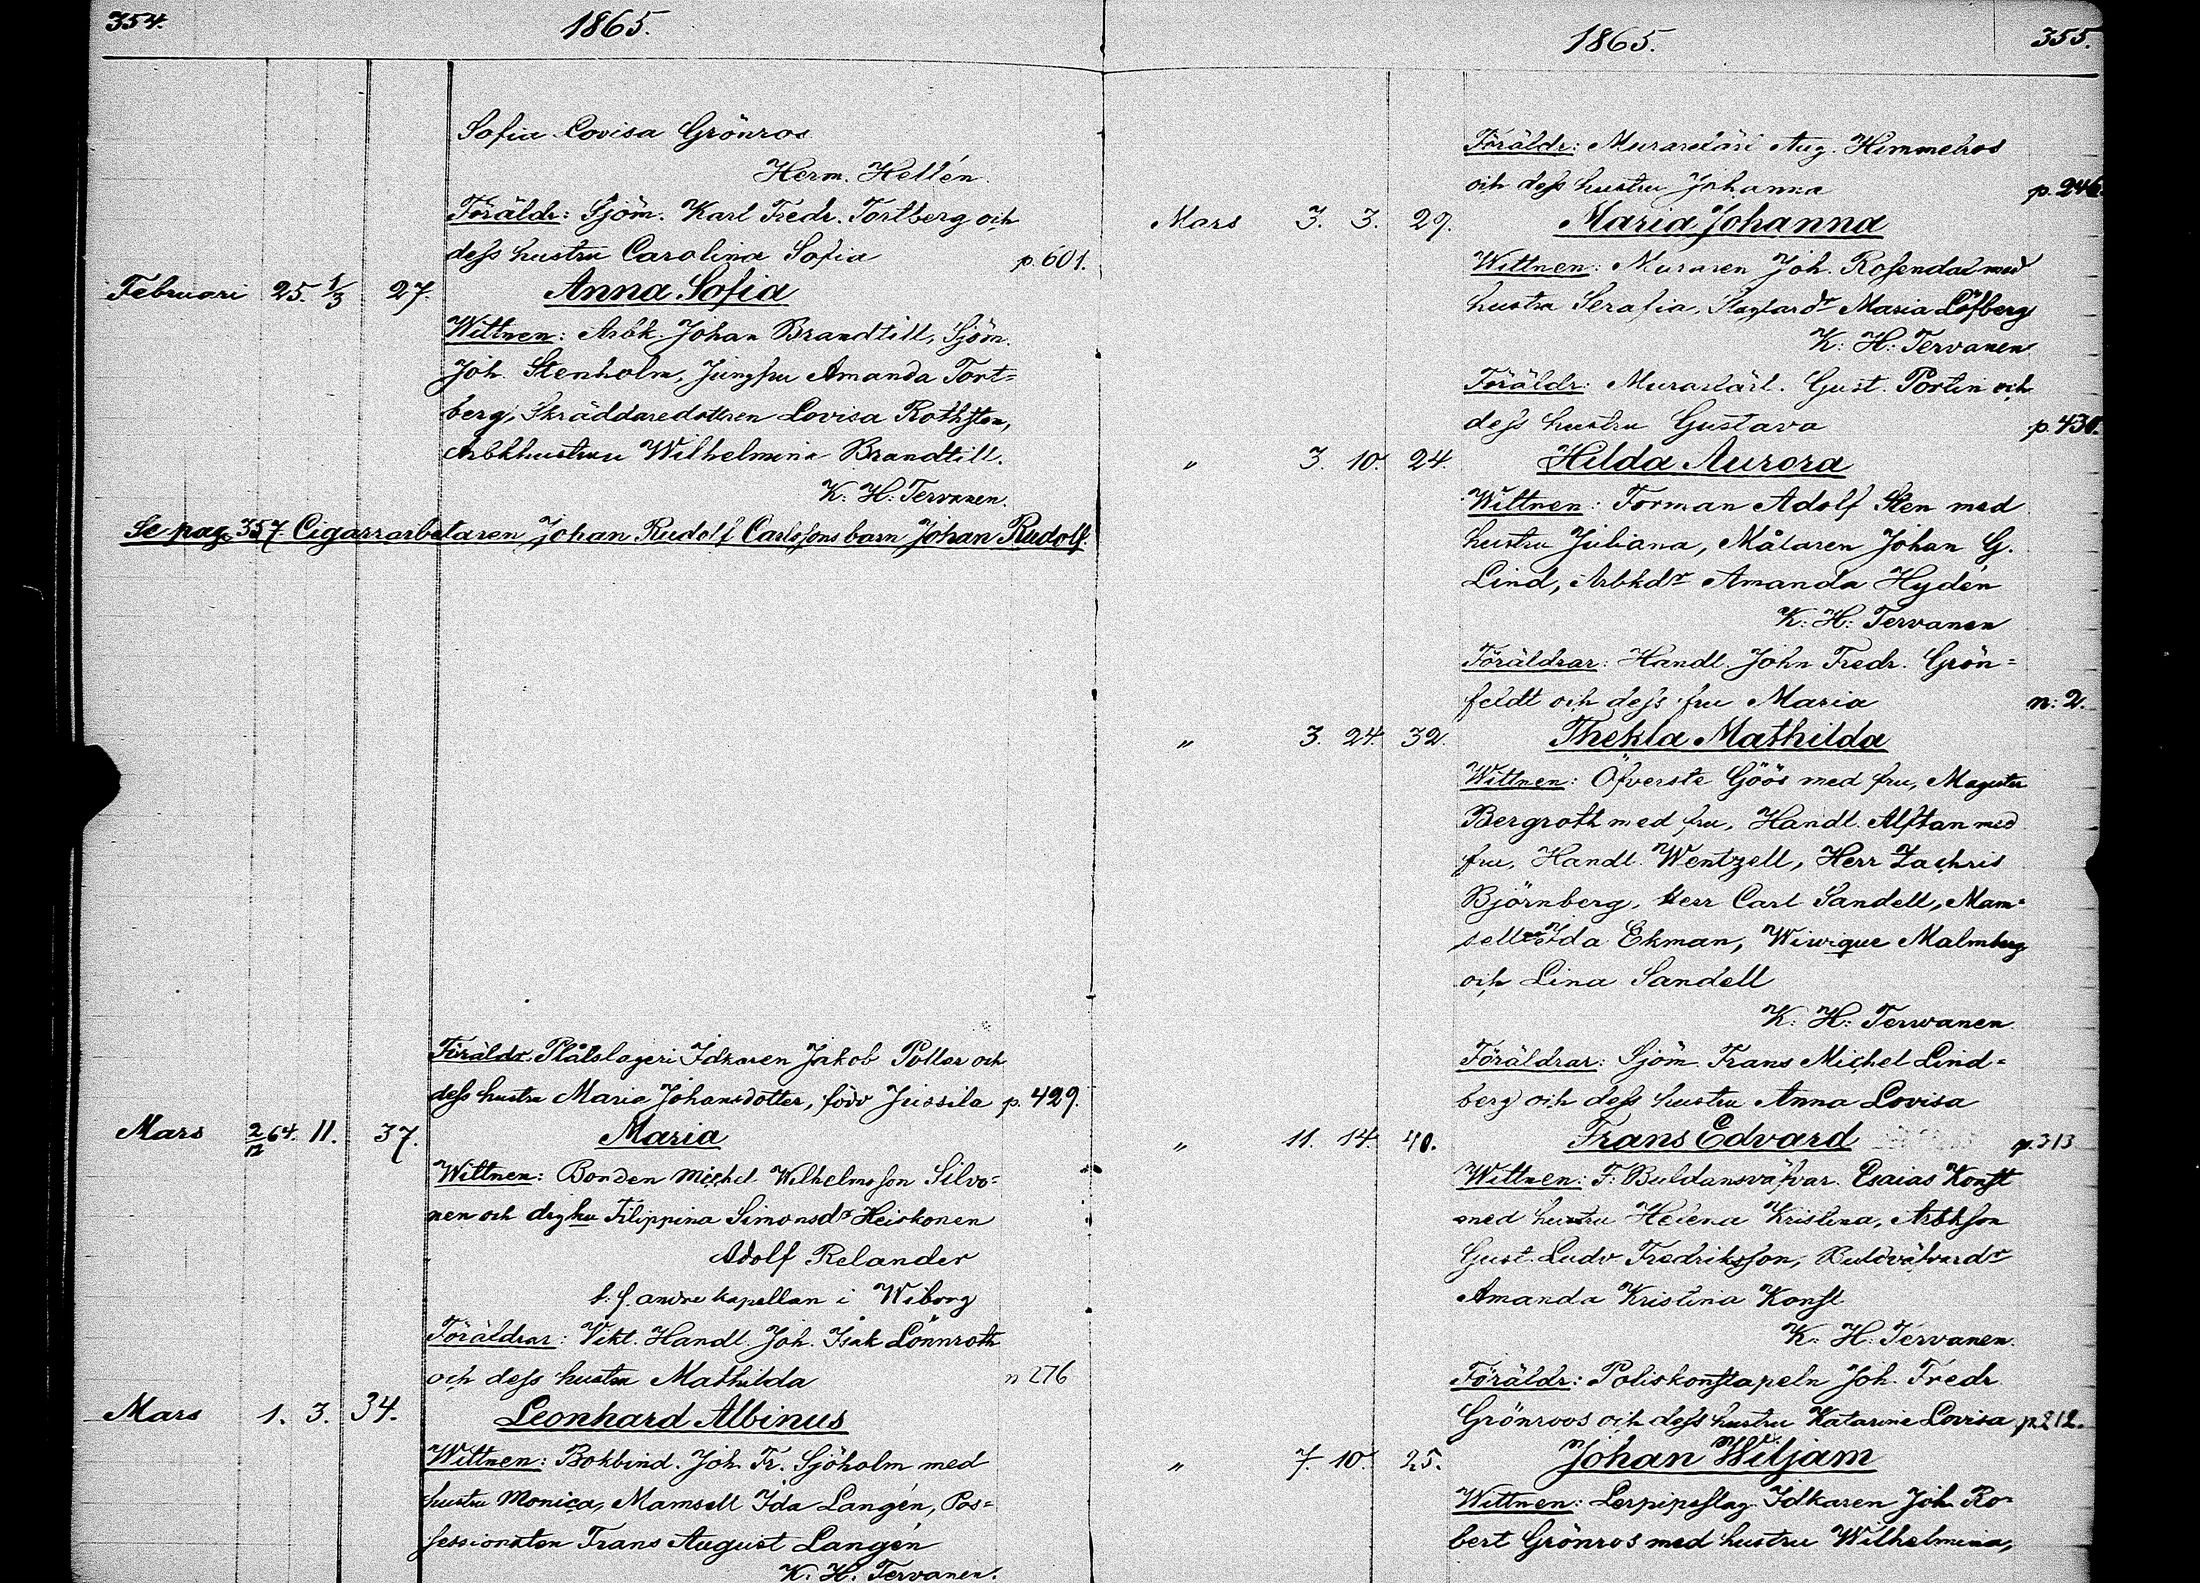 354.
1865.
Sofia Lovisa Grönros
Herm. Hellén.
Föräldr: Sjöm. Karl Fredr. Tortberg och
dess hustru Carolina Sofia p. 601.
Februari 25. 1/3 27. Anna Sofia
Wittnen: Arbk. Johan Brandtill, Sjöm.
Joh. Stenholm, Jungfru Amanda Tort=
berg, Skräddaredottren Lovisa Rothsten,
Arbkhustrun Wilhelmina Brandtill.
K: H: Tervanen.
Se pag. 357 Cigarrarbetaren Johan Rudolf Carlssons barn Johan Rudolf.
Föräldr. Plåtslageri Idkaren Jakob Pollar och
dess hustru Maria Johansdotter, född Jussila p. 429.
Mars 2/12 64. 11. 37. Maria
Wittnen: Bonden Michel Wilhelmsson Silvo=
nen och Filippina Simonsdr Heiskonen
Adolf Relander
t. f. andre kapellan i Wiborg
Föräldrar: Vikt. Handl. Joh. Isak Lönnroth
och dess hustru Mathilda n 276
Mars 1. 3. 34. Leonhard Albinus
Wittnen: Bokbind. Joh. Fr. Sjöholm med
hustru Monica, Mamsell Ida Langén, Pos=
sessionaten Frans August Langén
K. H. Tervanen.
1865.
355.
Föräldr: Murarelärl Aug. Himmelros
och dess hustru Johanna p. 246.
Mars 3. 3. 29. Maria Johanna
Wittnen: Muraren Joh. Rosendal med
hustru Serafia, Maria Löfberg
K: H: Tervanen.
Föräldr: Murarlärl. Gust. Portin och
dess hustru Gustava p. 430.
" 3. 10. 24. Hilda Aurora
Wittnen: Forman Adolf Sten med
hustru Juliana, Målaren Johan G.
Lind, Arbkdr Amanda Hydén
K: H: Tervanen
Föräldrar: Handl. John Fredr. Grön=
feldt och dess fru Maria n: 2.
" 3. 24. 32. Thekla Mathilda
Wittnen: Öfverste Göös med fru, Magister
Bergroth med fru, Handl. Alftan med
fru, Handl. Wentzell, Herr Zachris
Björnberg, Herr Carl Sandell, Mam=
seller Ida Ekman, Wiwique Malmberg
och Lina Sandell
K: H: Terwanen
Föräldrar: Sjöm. Frans Michel Lind=
berg och dess hustru Anna Lovisa
" 11. 14. 40. Frans Edvard p. 313
Wittnen: F. Buldansväfvar. Esaias Konst
med hustru Helena Kristina, Arbkson
Gust. Ludv Fredriksson, Buldväfvardr
Amanda Kristina Konst
K: H: Tervanen.
Föräldr: Poliskonstapeln Joh. Fredr
Grönroos och dess hustru Katarina Lovisa p. 212.
" 7. 10. 25. Johan Wiljam
Wittnen: Lerpipslag. Idkaren Joh. Ro=
bert Grönros med hustru Wilhelmina,